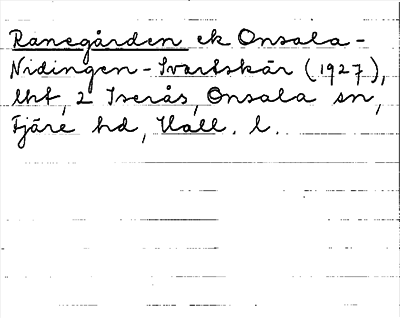 Ranegården ek Onsala-
Nidingen - Svartskär (1927),
lht, 2 Iserås, Onsala sn,
Fjäre hd, Hall. l.